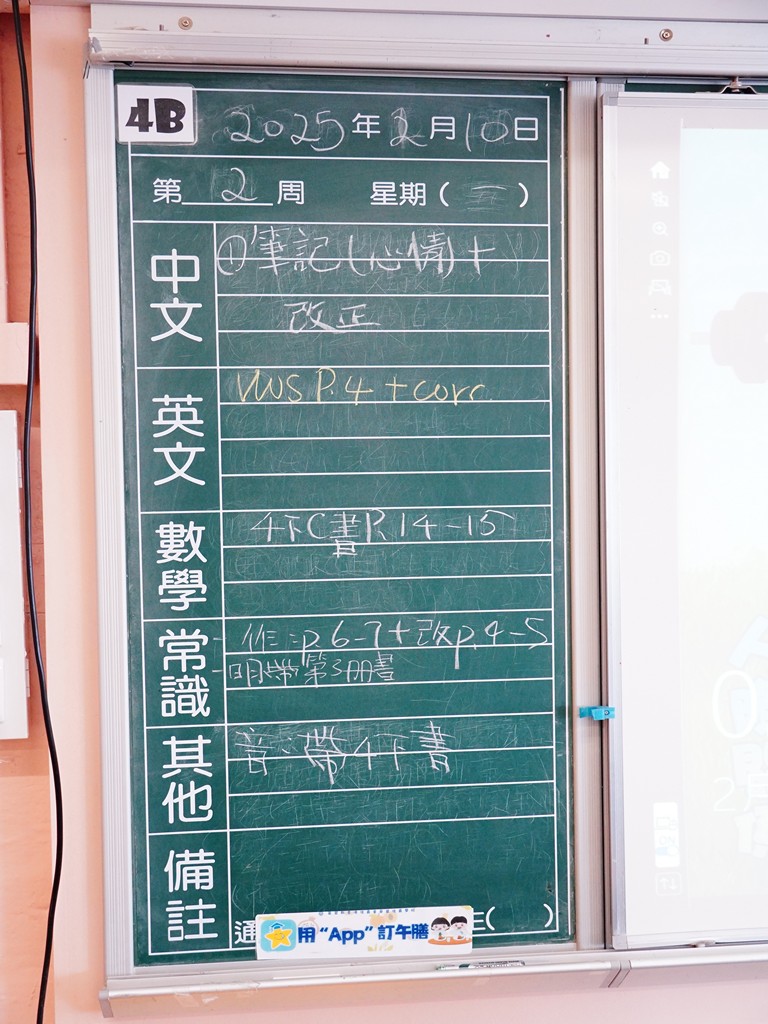 4B
2025年2月10日
第2周 星期(一)
中文
①筆記(心情)+
改正
英文
VWS P.4 + corr.
數學
4下C書P.14-15
常識
作:p.6-7+改p.4-5
明帶第3冊書
其他
音:帶4下書
備註
用“App”訂午膳
( )